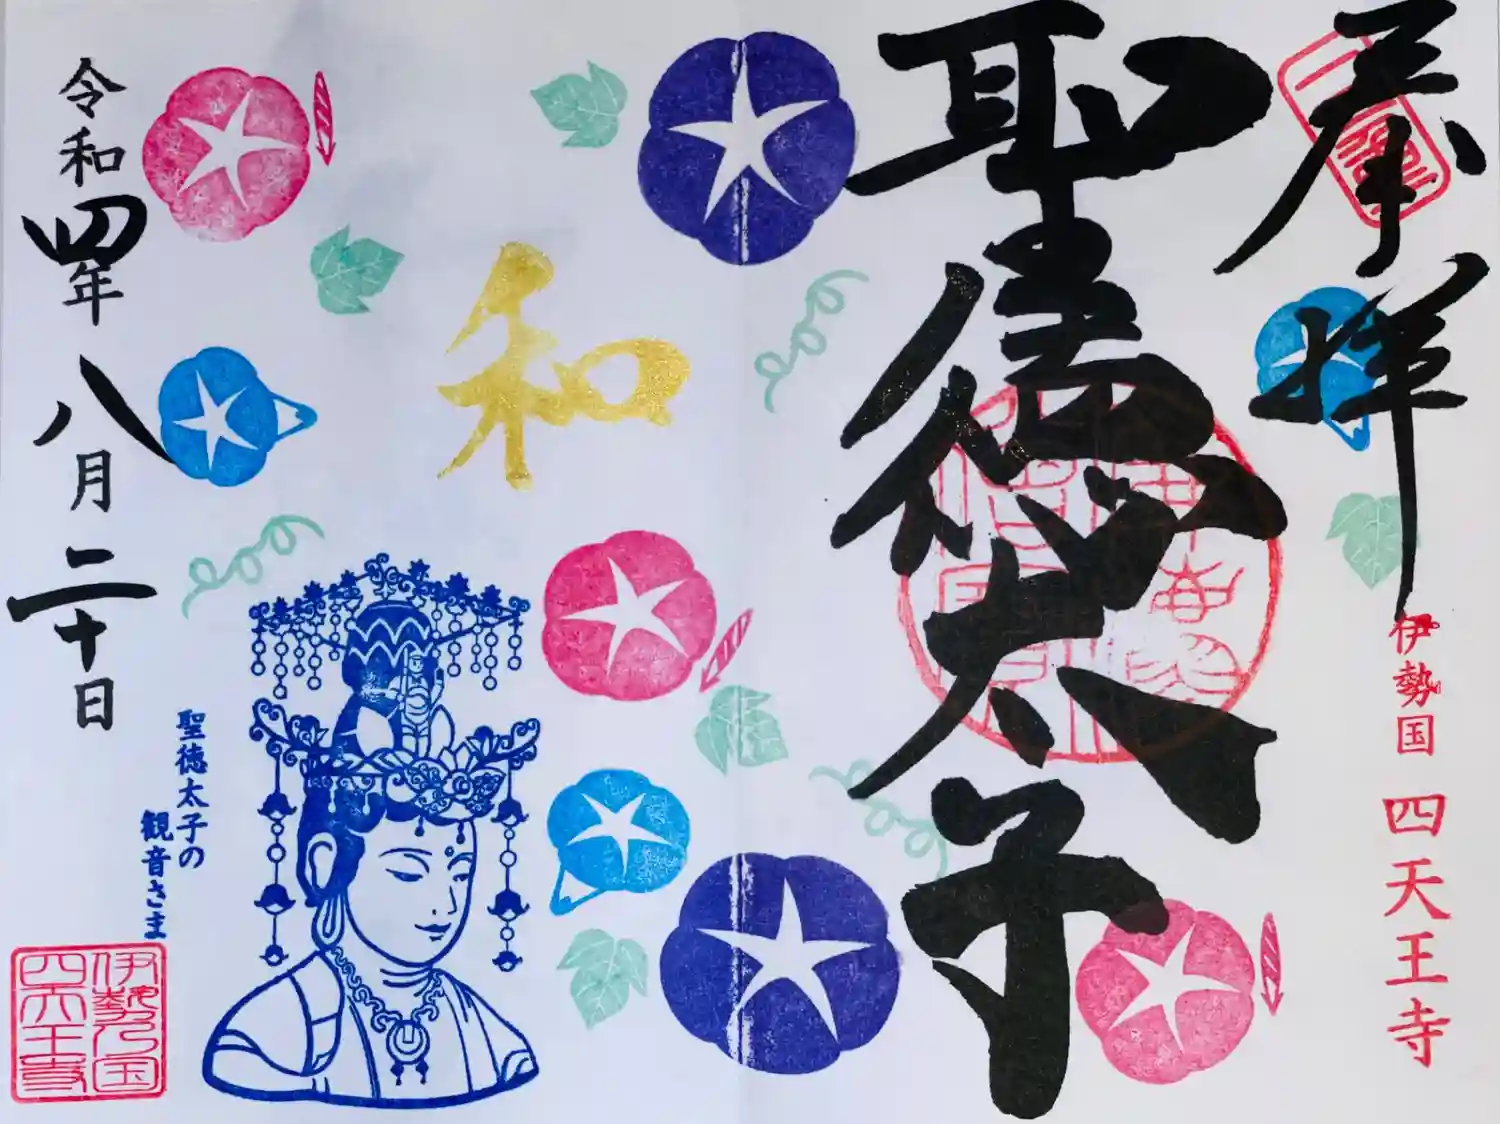 奉拝
伊勢国 四天王寺
聖徳太子
和
聖徳太子の
観音さま
令和四年 八月二十日
伊勢乃国
四天王寺